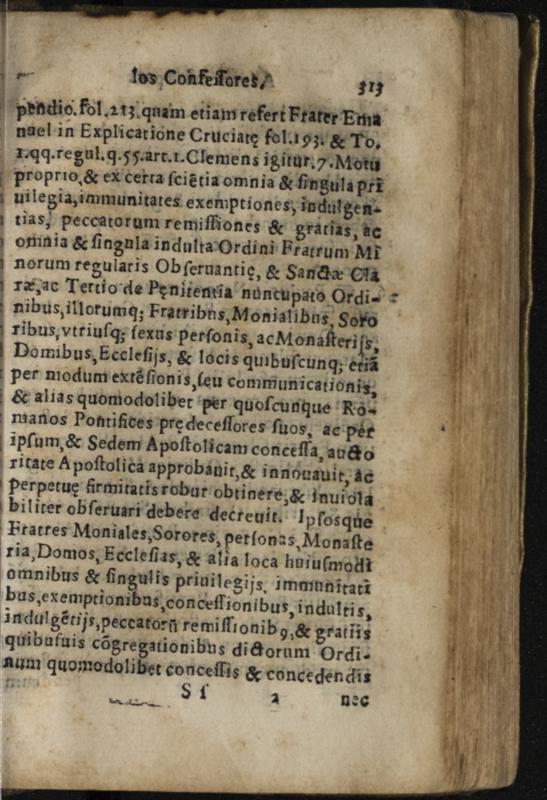 los Confeſſores, 313
pendio. fol. 213. quam etiam refert Frater Ema
nuel in Explicatione Cruciatę fol. 193. & To.
1. qq. regul. q. 55. art. 1. Clemens igitur. 7. Motu
proprio, & ex certa ſciẽtia omnia & ſingula pri
uilegia, immunitates exemptiones, indulgen-
tias, peccatorum remiſſiones & gratias, ac
omnia & ſingula indulta Ordini Fratrum Mi
norum regularis Obſeruantię, & Sanctæ Cla
ræ, ac Tertio de Pęnitentia nuncupato Ordi-
nibus, illorumq; Fratribus, Monialibus, Soro
ribus, vtriuſq; ſexus perſonis, ac Monaſterijs,
Domibus, Eccleſijs, & locis quibuſcunq; etiã
per modum extẽſionis, ſeu communicationis,
& alias quomodolibet per quoſcunque Ro-
manos Pontifices prędeceſſores ſuos, ac per
ipſum, & Sedem Apoſtolicam conceſſa, aucto
ritate Apoſtolica approbauit, & innouauit, ac
perpetuę firmitatis robur obtinere, & inuiola
biliter obſeruari debere decreuit. Ipſosque
Fratres Moniales, Sorores, perſonas, Monaſte
ria, Domos, Eccleſias, & alia loca huiuſmodi
omnibus & ſingulis priuilegijs, immunitati
bus, exemptionibus, conceſſionibus, indultis,
indulgẽtijs, peccatorũ remiſſionibꝰ, & gratijs
quibuſuis cõgregationibus dictorum Ordi-
num quomodolibet conceſſis & concedendis
Sſ 2 nec